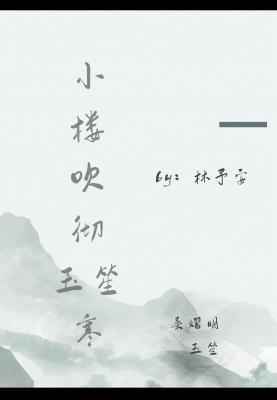 小楼吹彻玉笙寒
by：林予安
吴熠明
玉笙